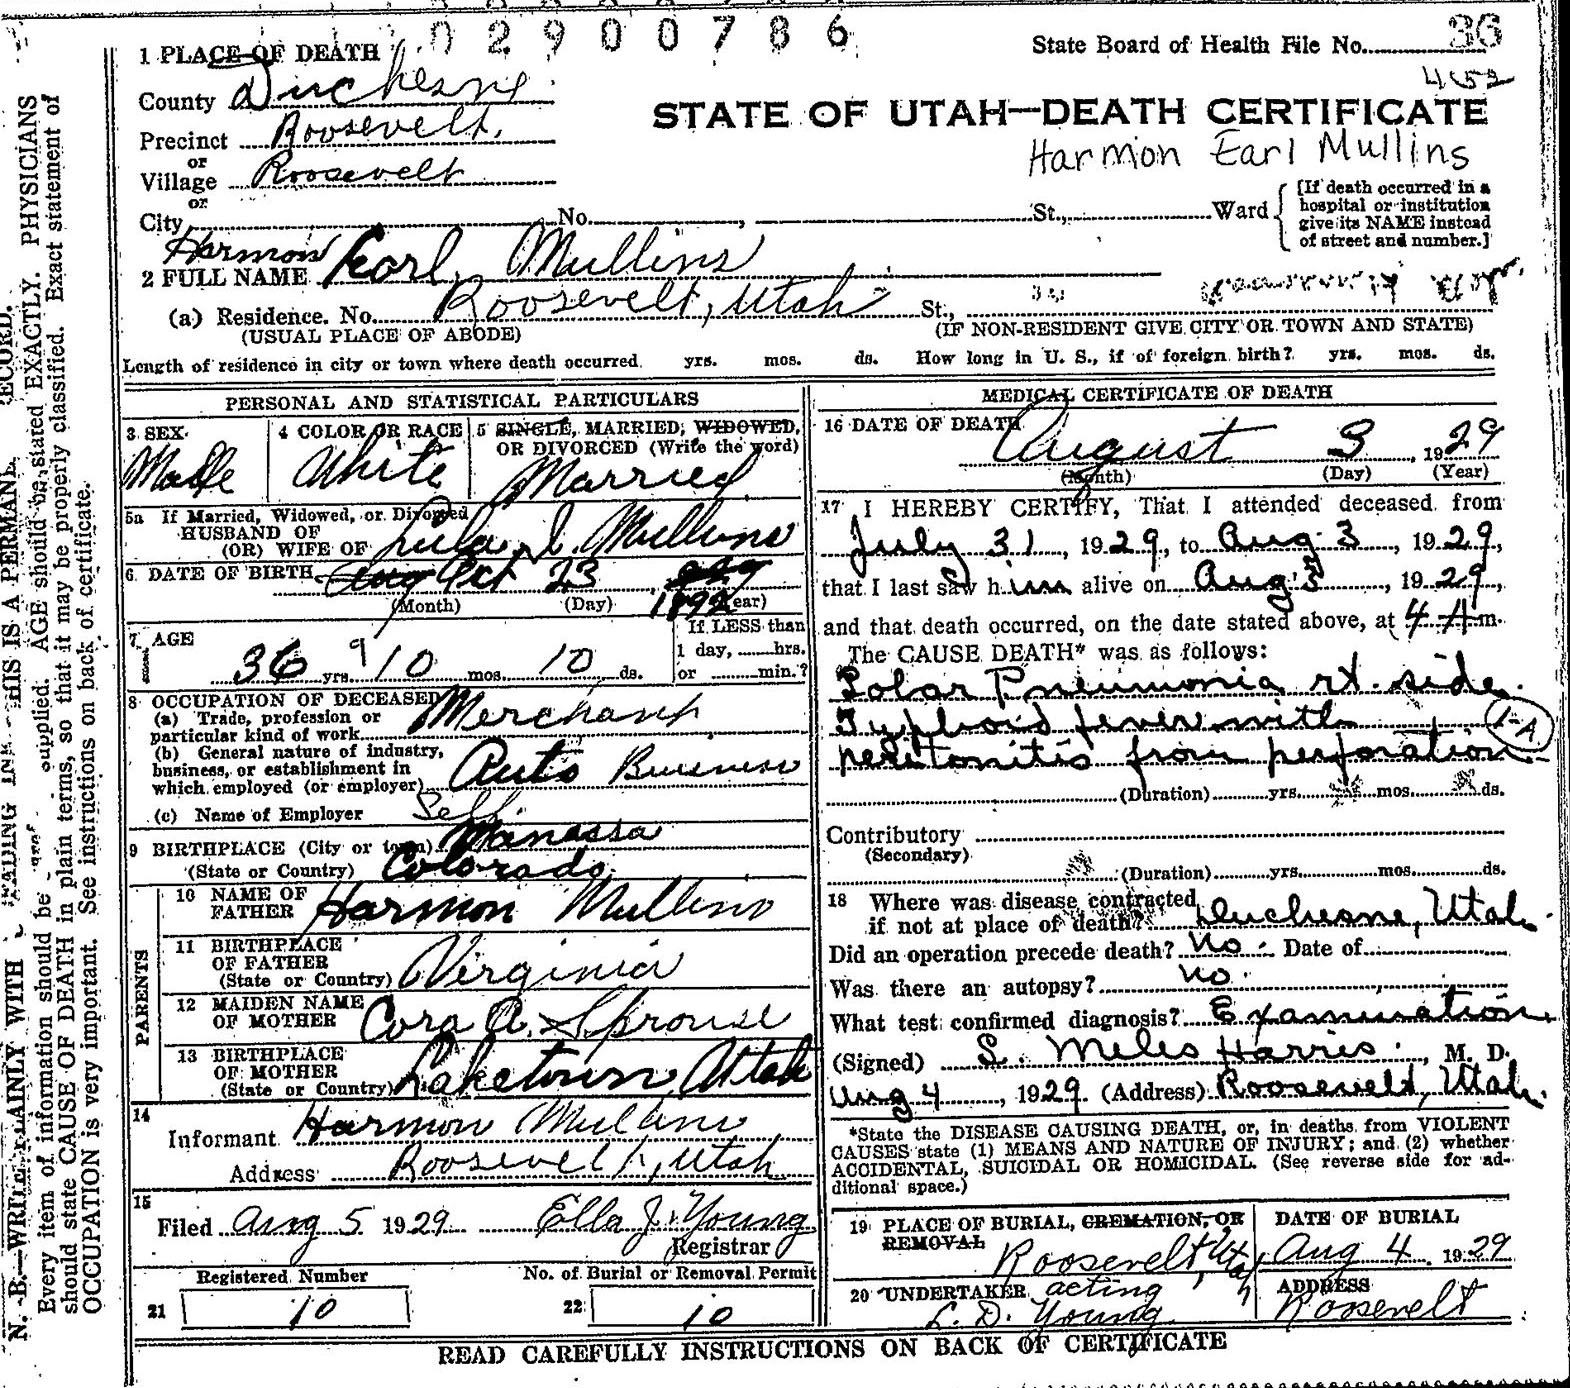 02900786
State Board of Health File No. 36
452
1 PLACE OF DEATH
County Duchesne
STATE OF UTAH—DEATH CERTIFICATE
Precinct Roosevelt.
Harmon Earl Mullins
or
Village Roosevelt
or
City No. , St., Ward
[If death occurred in a hospital or institution give its NAME instead of street and number.]
Harmon
2 FULL NAME Earl Mullins
(a) Residence. No. Roosevelt, Utah St.,
(USUAL PLACE OF ABODE) (IF NON-RESIDENT GIVE CITY OR TOWN AND STATE)
Length of residence in city or town where death occurred. yrs. mos. ds. How long in U. S., if of foreign birth? yrs. mos. ds.
PERSONAL AND STATISTICAL PARTICULARS
3 SEX
Male
4 COLOR OR RACE
White
5 SINGLE, MARRIED, WIDOWED,
OR DIVORCED (Write the word)
Married
5a If Married, Widowed, or Divorced
HUSBAND OF
(OR) WIFE OF Lula I. Mullins
6 DATE OF BIRTH Aug Oct 23 1892
(Month) (Day) (Year)
7 AGE
36 yrs. 9 10 mos. 10 ds.
If LESS than
1 day, hrs.
or min.?
8 OCCUPATION OF DECEASED
(a) Trade, profession or
particular kind of work Merchant
(b) General nature of industry,
business, or establishment in
which employed (or employer) Auto Business
(c) Name of Employer Self
9 BIRTHPLACE (City or town) Manassa
(State or Country) Colorado
PARENTS
10 NAME OF
FATHER Harmon Mullins
11 BIRTHPLACE
OF FATHER
(State or Country) Virginia
12 MAIDEN NAME
OF MOTHER Cora A. Sprouse
13 BIRTHPLACE
OF MOTHER
(State or Country) Laketown, Utah
14
Informant Harmon Mullins
Address Roosevelt, Utah
15
Filed Aug 5 1929 Ella J. Young
Registrar
Registered Number
21 10
No. of Burial or Removal Permit
22 10
MEDICAL CERTIFICATE OF DEATH
16 DATE OF DEATH
August 3, 1929
(Month) (Day) (Year)
17 I HEREBY CERTIFY, That I attended deceased from
July 31, 1929, to Aug 3, 1929,
that I last saw him alive on Aug 3, 1929,
and that death occurred, on the date stated above, at 4 A m.
The CAUSE DEATH* was as follows:
Lobar Pneumonia rt. side.
Typhoid fever with
1-A
peritonitis from perforation
(Duration) yrs. mos. ds.
Contributory
(Secondary)
(Duration) yrs. mos. ds.
18 Where was disease contracted
if not at place of death? Duchesne, Utah.
Did an operation precede death? No. Date of
Was there an autopsy? no.
What test confirmed diagnosis? Examination.
(Signed) S. Miles Harris., M. D.
Aug 4, 1929 (Address) Roosevelt, Utah.
*State the DISEASE CAUSING DEATH, or, in deaths from VIOLENT
CAUSES state (1) MEANS AND NATURE OF INJURY; and (2) whether
ACCIDENTAL, SUICIDAL OR HOMICIDAL. (See reverse side for ad-
ditional space.)
19 PLACE OF BURIAL, CREMATION, OR
REMOVAL
Roosevelt, Utah
DATE OF BURIAL
Aug 4 1929
20 UNDERTAKER acting
L. D. Young
ADDRESS
Roosevelt
READ CAREFULLY INSTRUCTIONS ON BACK OF CERTIFICATE
Every item of information should be supplied. AGE should be stated EXACTLY. PHYSICIANS
should state CAUSE OF DEATH in plain terms, so that it may be properly classified. Exact statement of
OCCUPATION is very important. See instructions on back of certificate.